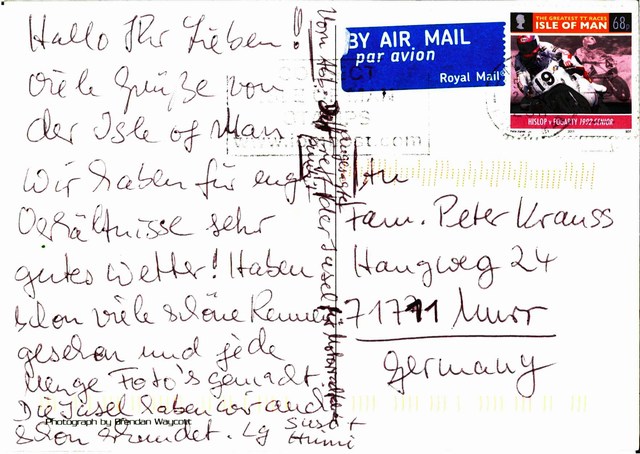 Hallo Ihr Lieben!
viele Grüße von
der Isle of Man
Wir haben für engl.
Verhältnisse sehr
gutes Wetter! Haben
schon viele schöne Rennen
gesehen und jede
Menge Foto's gemacht.
Die Insel haben wir auch
schon erkundet. Lg Susi +
Heimi
Photograph by Brendan Waycott
BY AIR MAIL
par avion
Royal Mail
THE GREATEST TT RACES
ISLE OF MAN 68p
19
HISLOP v FOGARTY 1992 SENIOR
An
Fam. Peter Krauss
Hangweg 24
71711 Murr
Germany